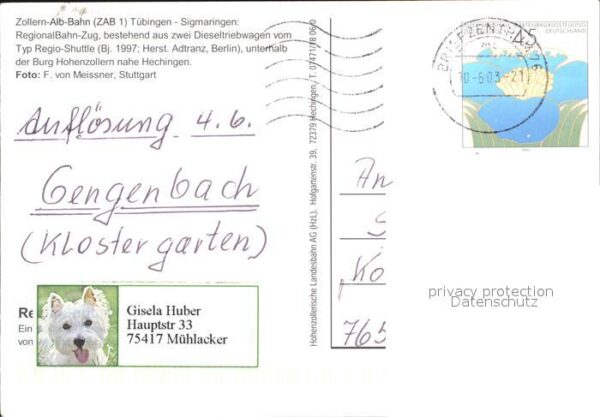 Zollern-Alb-Bahn (ZAB 1) Tübingen - Sigmaringen:
RegionalBahn-Zug, bestehend aus zwei Dieseltriebwagen vom
Typ Regio-Shuttle (Bj. 1997; Herst. Adtranz, Berlin), unterhalb
der Burg Hohenzollern nahe Hechingen.
Foto: F. von Meissner, Stuttgart
Auflösung 4.6.
Gengenbach
(Klostergarten)
Re
Ein
von
Gisela Huber
Hauptstr 33
75417 Mühlacker
Hohenzollerische Landesbahn AG (HzL), Hofgartenstr. 39, 72379 Hechingen, T. 07471/18 06-0
BRIEFZENTRUM 76
10.-6.03.-21
45
DEUTSCHLAND
An
S
„Ko
765
privacy protection
Datenschutz